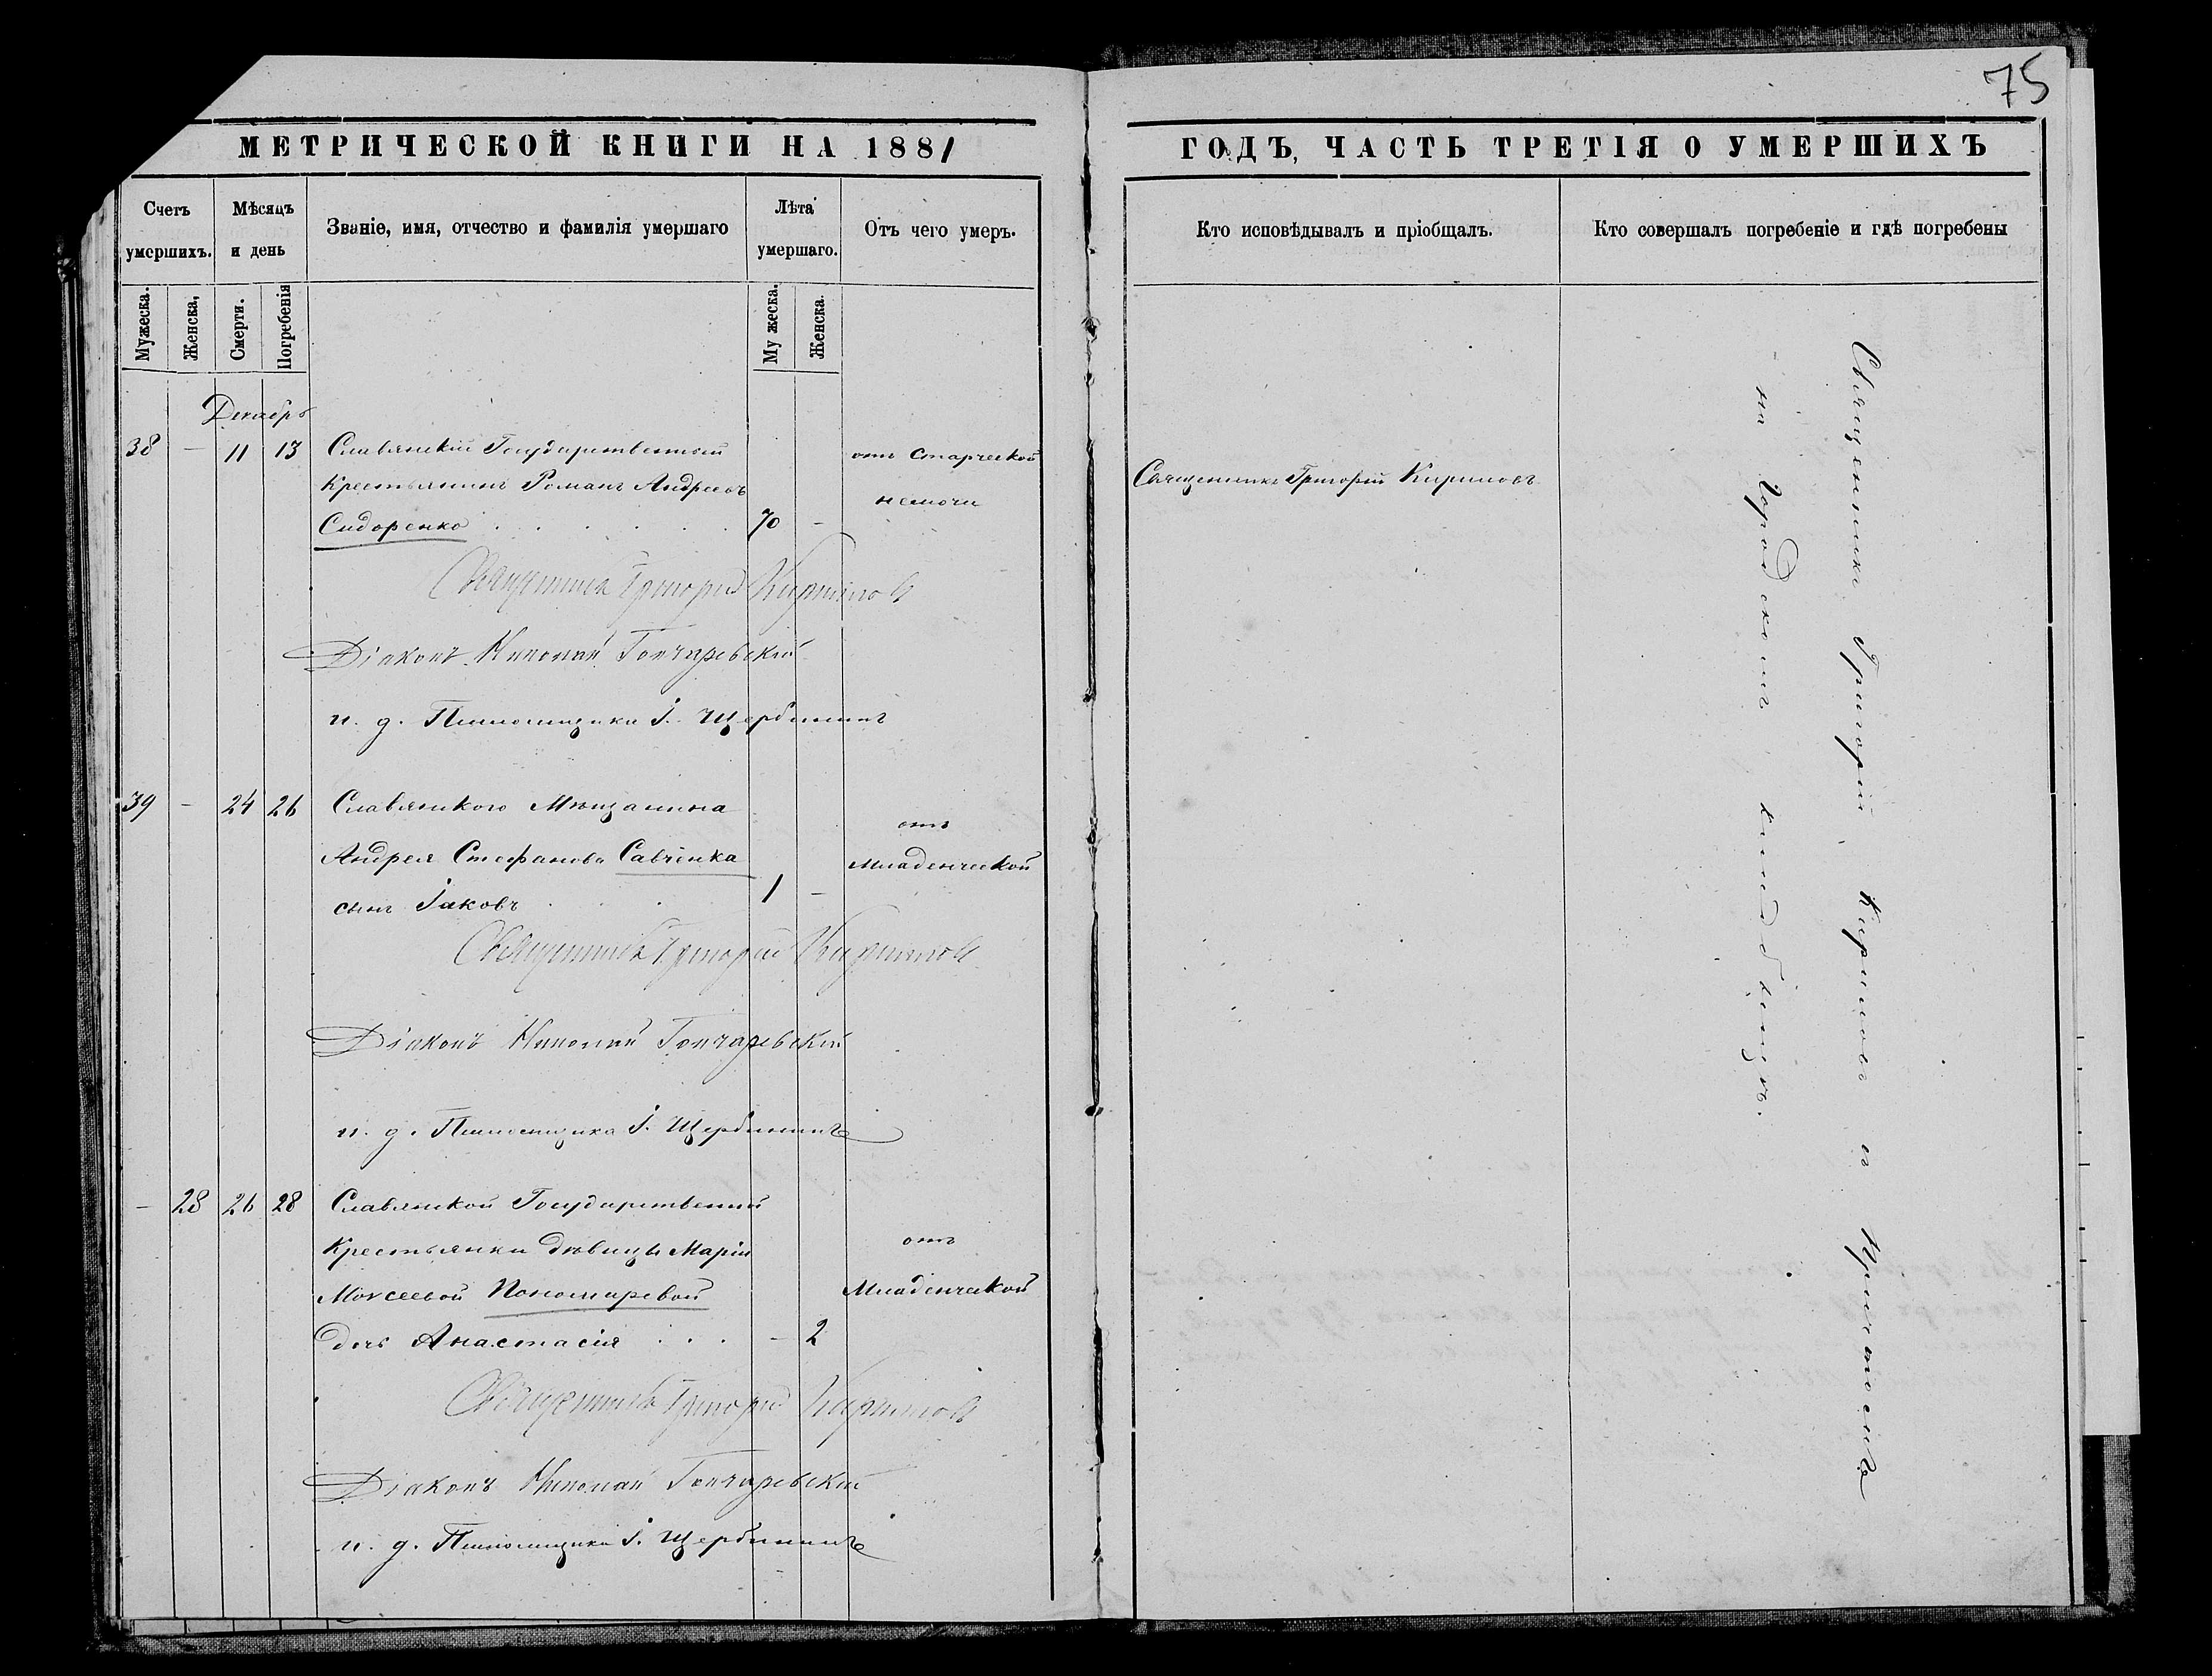 75
МЕТРИЧЕСКОЙ КНИГИ НА 1881
ГОДЪ, ЧАСТЬ ТРЕТІЯ О УМЕРШИХЪ
Счетъ умершихъ.
Мѣсяцъ и день
Званіе, имя, отчество и фамилія умершаго
Лѣта умершаго.
Отъ чего умеръ.
Кто исповѣдывалъ и пріобщалъ.
Кто совершалъ погребеніе и гдѣ погребены
Мужеска.
Женска,
Смерти.
Погребенія
Му жеска.
Женска.
Декабрь
38 — 11 13 Славянскій Государственный
Крестьянинъ Романъ Андреевъ
Сидоренко . . . . . . 70 —
отъ старческой
немочи
Священникъ Григорій Кириловъ
Священникъ Григорій Кириловъ
Діаконъ Николай Гончаревскій
и. д. Псаломщика І. Щербининъ
39 — 24 26 Славянскаго Мѣщанина
Андрея Стефанова Савченка
сынъ Іаковъ . . . 1 —
отъ
Младенческой
Священникъ Григорій Кириловъ
Діаконъ Николай Гончаревскій
и. д. Псаломщика І. Щербининъ
— 28 26 28 Славянской Государственной
Крестьянки дѣвицы Маріи
Моѵсеевой Пономаревой
дочь Анастасія . . . — 2
отъ
Младенческой
Священникъ Григорій Кириловъ
Діаконъ Николай Гончаревскій
и. д. Псаломщика І. Щербининъ
Священникъ Григорій Кириловъ съ Причтомъ
на Городскомъ кладбищѣ.